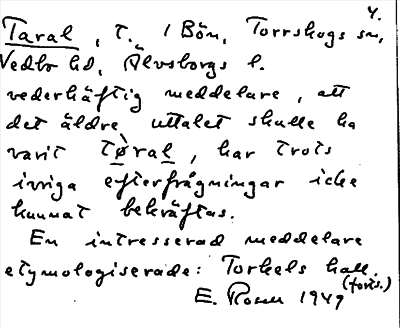 4.
Taral, t. / Bön, Torrskogs sn,
Vedbo hd, Älvsborgs l.
vederhäftig meddelare, att
det äldre uttalet skulle ha
varit tø̀ral, har trots
ivriga efterfrågningar icke
kunnat bekräftas.
En intresserad meddelare
etymologiserade: Torkels hall.
(forts.)
E. Rosell 1949